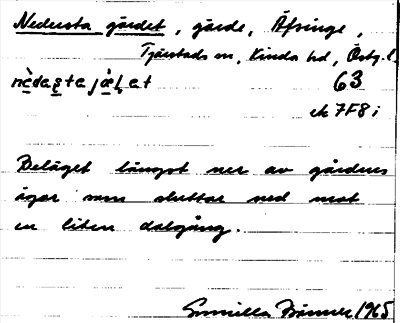 Nedersta gärdet, gärde, Äfsinge,
Tjärstads sn, Kinda hd, Östg. l.
63
ek 7F8 i
Beläget längst ner av gårdens
ägor som sluttar ned mot
en liten dalgång.
Gunilla 1965